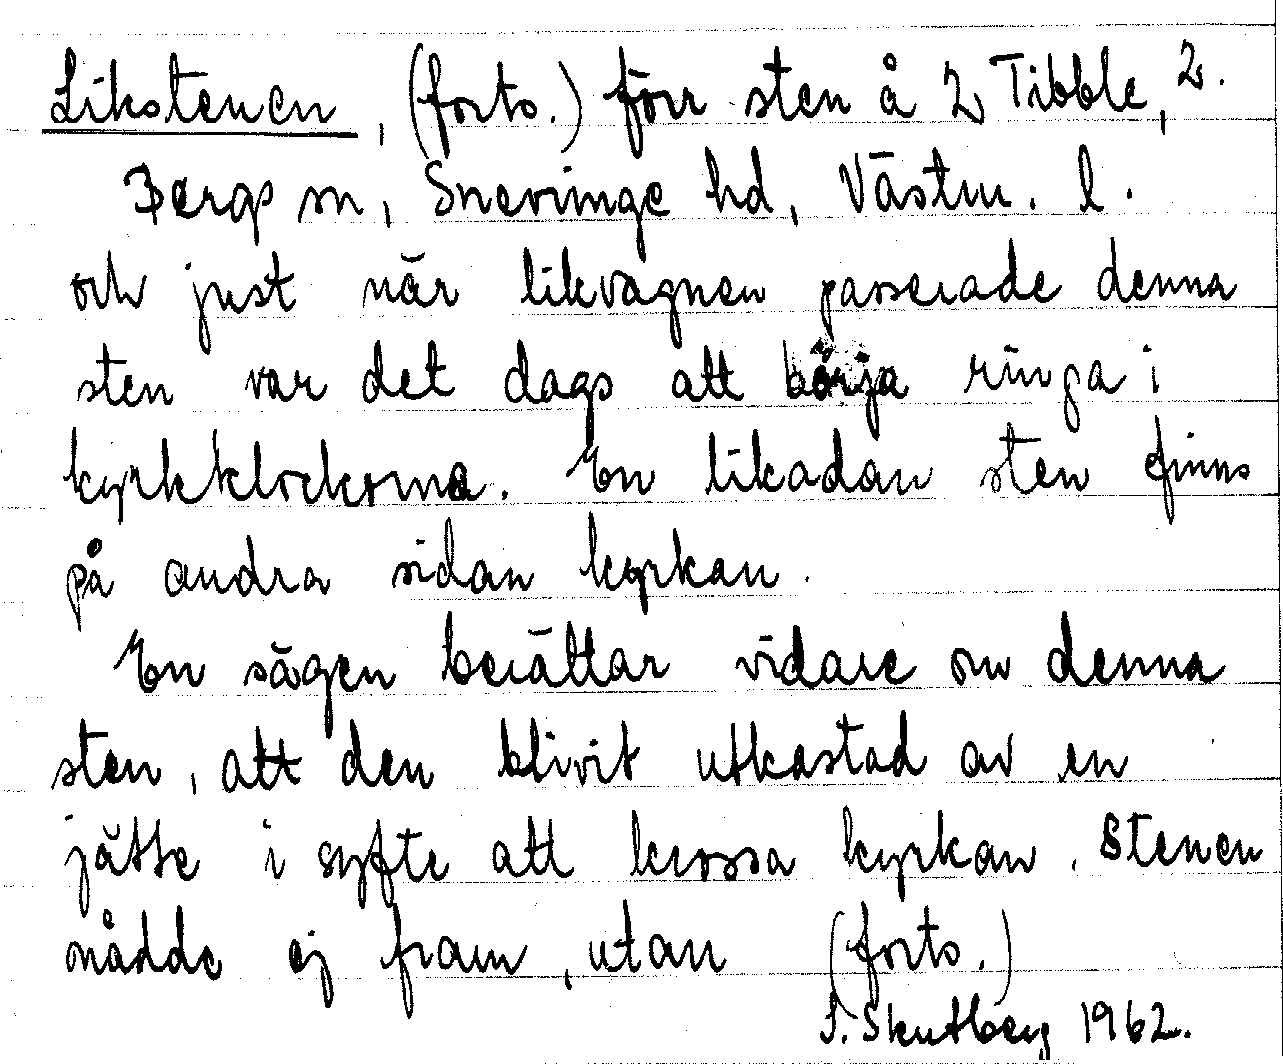 Likstenen, (forts.) förr sten å 2 Tibble, 2.
Bergs sn, Snevringe hd, Västm. l.
och just när likvagnen passerade denna
sten var det dags att börja ringa i
kyrkklockorna. En likadan sten finns
på andra sidan kyrkan.
En sägen berättar vidare om denna
sten, att den blivit utkastad av en
jätte i syfte att krossa kyrkan. Stenen
nådde ej fram, utan (forts.)
S. Skutberg 1962.